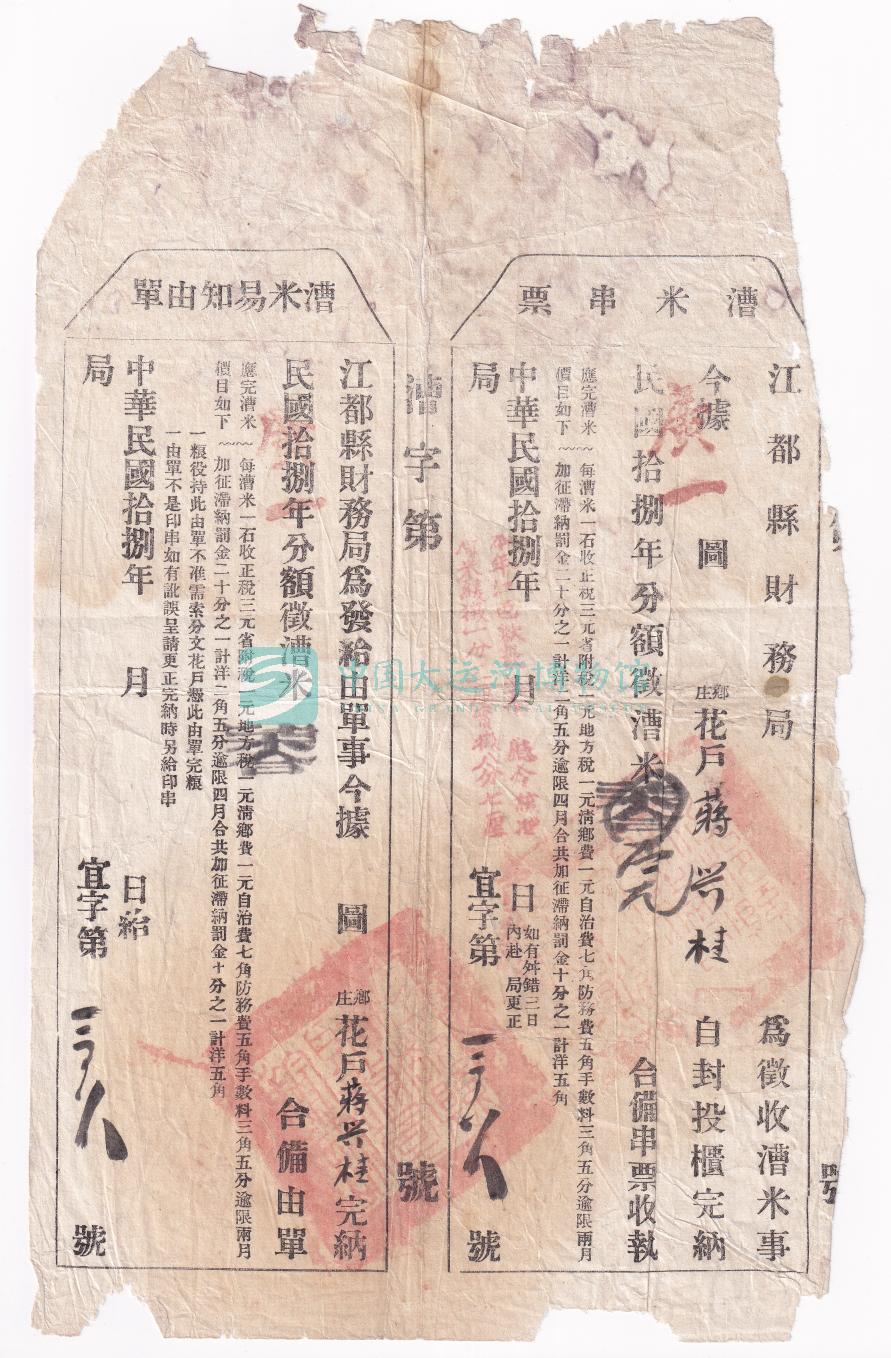 漕米串票
江都縣財務局 爲徵收漕米事
今據 圖 鄉庄花戶蔣兴桂 自封投櫃完納
民國拾捌年分額徵漕米 合備串票收執
應完漕米 每漕米一石收正税三元省附税一元地方税一元清鄉費一元自治費七角防務費五角手數料三角五分逾限兩月
價目如下 加征滯納罰金二十分之一計洋二角五分逾限四月合共加征滯納罰金十分之一計洋五角
中華民國拾捌年 月 日 如有舛錯三日內赴局更正
局 宜字第 號
字第 號
漕米易知由單
江都縣財務局爲發給由單事今據 圖 鄉庄花戶蔣兴桂完納
民國拾捌年分額徵漕米 合備由單
應完漕米 每漕米一石收正税三元省附税一元地方税一元清鄉費一元自治費七角防務費五角手數料三角五分逾限兩月
價目如下 加征滯納罰金二十分之一計洋二角五分逾限四月合共加征滯納罰金十分之一計洋五角
一粮役持此由單不准需索分文花戶憑此由單完粮
一由單不是印串如有訛誤呈請更正完納時另給印串
中華民國拾捌年 月 日給
局 宜字第 號
中国大运河博物馆